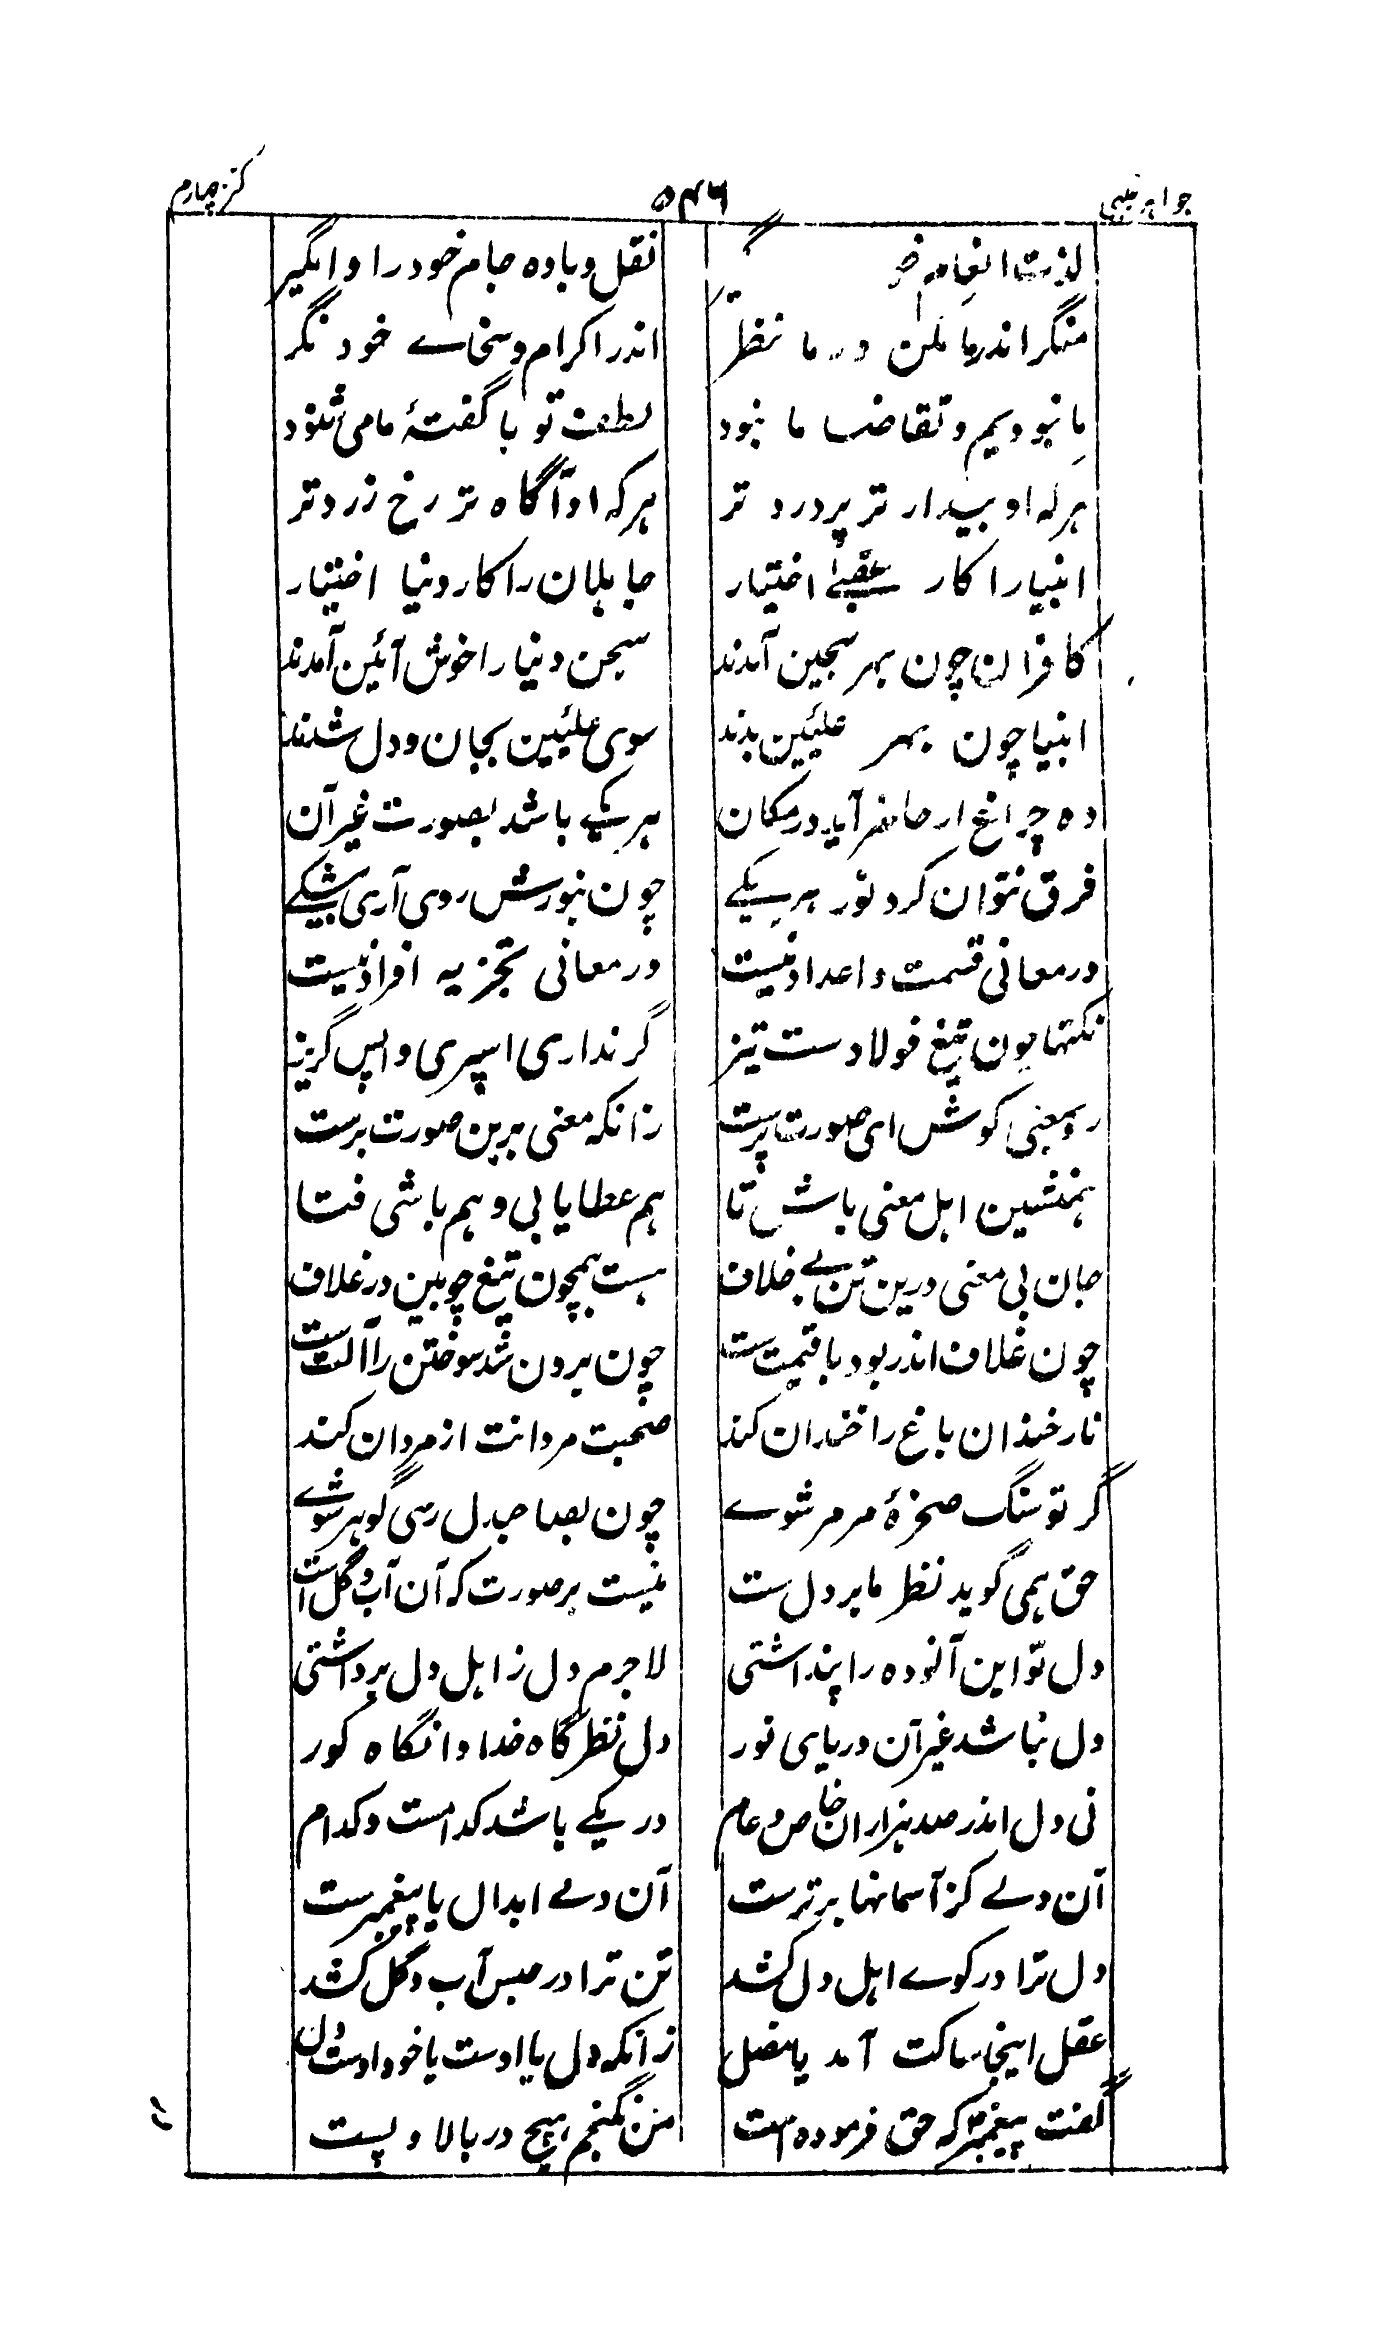 جواہر غیبی ۵۴۶ کنز چہارم
لذت انعام نقل و بادہ جام خود را وامگیر
منگر اندر ما مکن در ما نظر اندر اکرام و سخاے خود نگر
ما نبودیم و تقاضا ما نبود لطف تو با گفتۂ ما می شنود
ہرکہ او بیدار تر پر درد تر ہرکہ او آگاہ تر رخ زرد تر
انبیا را کار عقبےٰ اختیار جاہلان را کار دنیا اختیار
کافران چون بہر سجین آمدند سجن دنیا را خوش آئین آمدند
انبیا چون بہر علیین بدند سوی علیین بجان و دل شدند
دہ چراغ ار حاضر آید در مکان ہر یکے باشد بصورت غیر آن
فرق نتوان کرد نور ہر یکے چون بنورش روی آری بیشکے
در معانی قسمت و اعداد نیست در معانی تجزیہ افراد نیست
نکتہا چون تیغ فولادست تیز گر نداری اسپری واپس گریز
رو بمعنی کوش ای صورت پرست زانکہ معنی بر تن صورت پرست
ہمنشین اہل معنی باش تا ہم عطا یابی و ہم باشی فتا
جان بی معنی درین تن بے خلاف ہست ہمچون تیغ چوبین در غلاف
چون غلاف اندر بود با قیمت ست چون برون شد سوختن را آلت ست
نار خندان باغ را خندان کند صحبت مردانت از مردان کند
گر تو سنگ صخرۂ مرمر شوے چون بصاحبدل رسی گوہر شوے
حق ہمی گوید نظر ما بر دل ست نیست بر صورت کہ آن آب و گل است
دل تو این آلودہ را پنداشتی لاجرم دل ز اہل دل برداشتی
دل نباشد غیر آن دریای نور دل نظرگاہ خدا وانگاہ کور
نی دل اندر صد ہزاران خاص و عام در یکے باشد کدامست و کدام
آن دلے کز آسمانہا برترست آن دلے ابدال یا پیغمبرست
دل ترا در کوے اہل دل کشد تن ترا در حبس آب و گل کشد
عقل اینجا ساکت آمد یا مضل زانکہ دل یا اوست یا خود اوست دل
گفت پیغمبر کہ حق فرمودہ است من نگنجم ہیچ در بالا و پست